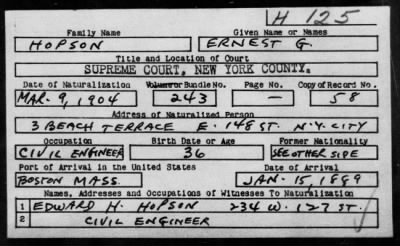 H 125
Family Name Given Name or Names
HOPSON ERNEST G.
Title and Location of Court
SUPREME COURT, NEW YORK COUNTY.
Date of Naturalization Volume or Bundle No. Page No. Copy of Record No.
MAR. 9, 1904 243 — 58
Address of Naturalized Person
3 BEACH TERRACE E. 148 ST. N.Y. CITY
Occupation Birth Date or Age Former Nationality
CIVIL ENGINEER 36 SEE OTHER SIDE
Port of Arrival in the United States Date of Arrival
BOSTON MASS. JAN. 15, 1889
Names, Addresses and Occupations of Witnesses To Naturalization
1 EDWARD H. HOPSON 234 W. 127 ST.
2 CIVIL ENGINEER